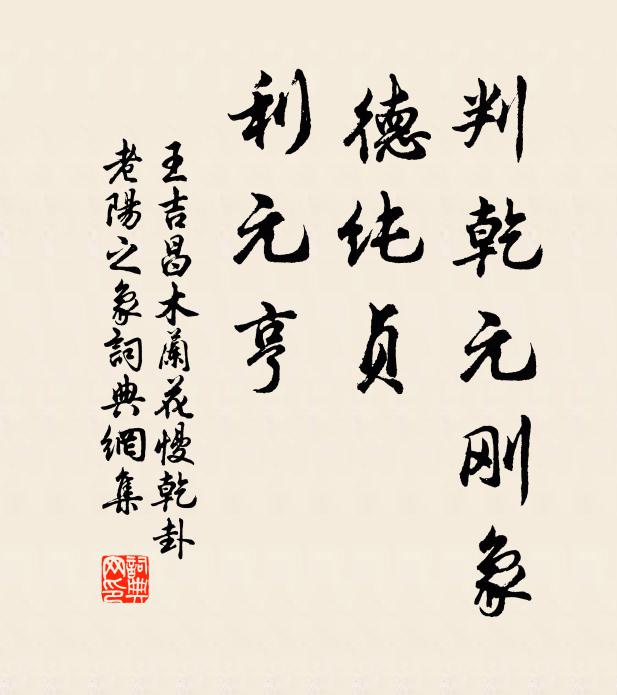 判乾元刚象
德纯贞
利元亨
王吉昌木蘭花慢乾卦
老陽之象詞典網集
詞典网印